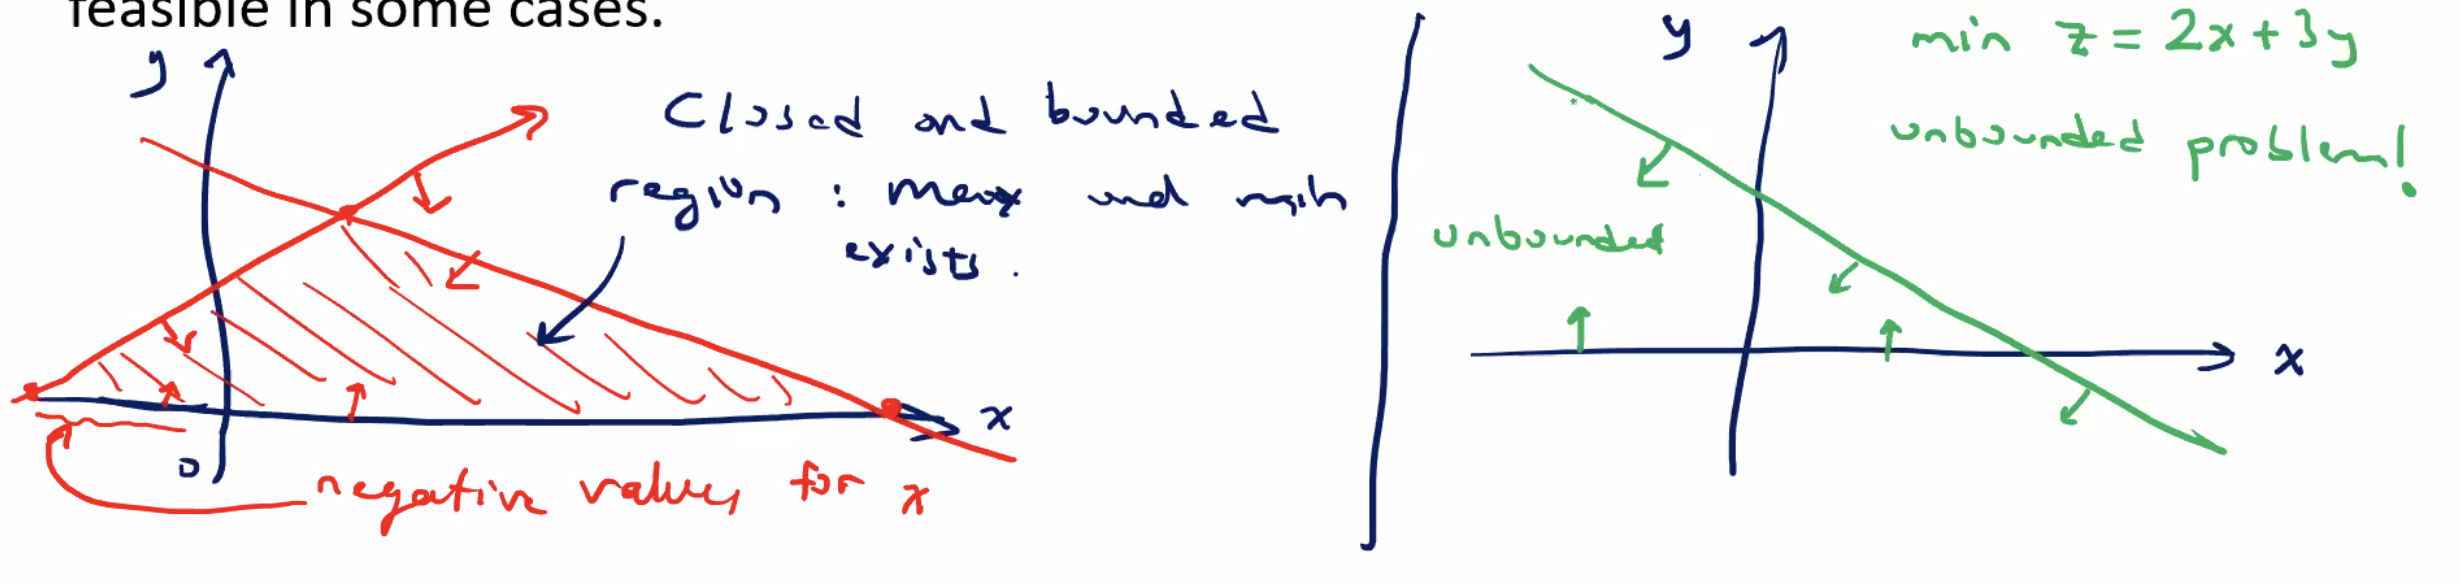 feasible in some cases.
y
Closed and bounded
region : max and min
exists.
x
0
negative values for x
y
min z = 2x+3y
unbounded problem!
unbounded
x